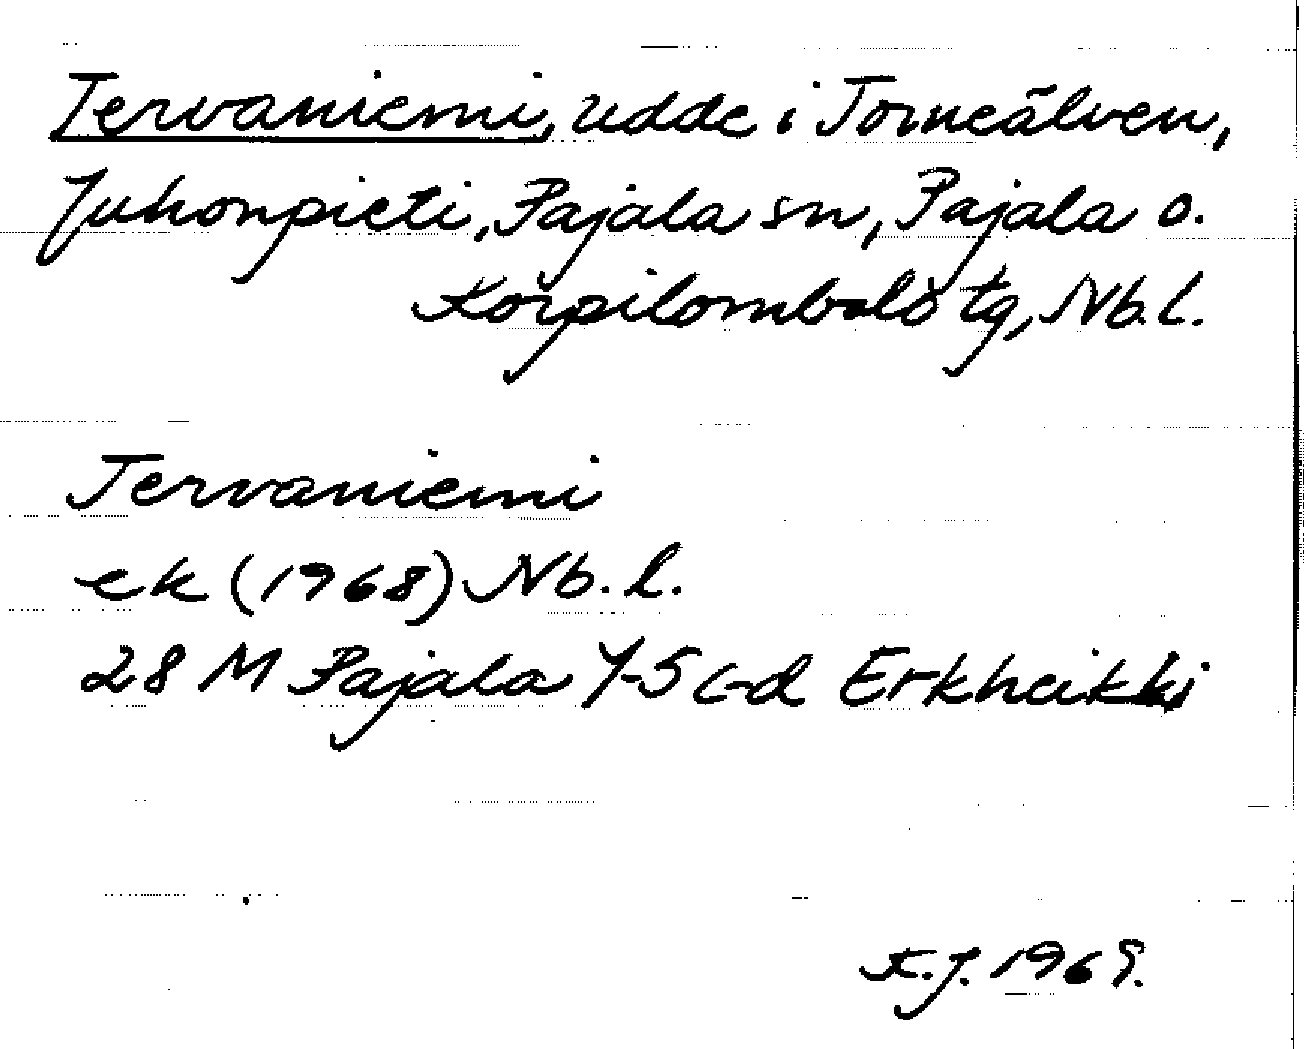 Tervaniemi, udde i Torneälven,
Juhonpieti, Pajala sn, Pajala o.
Korpilombolo tg, Nb.l.
Tervaniemi
ek (1968) Nb.l.
28 M Pajala 4-5 c-d Erkheikki
K.J. 1969.